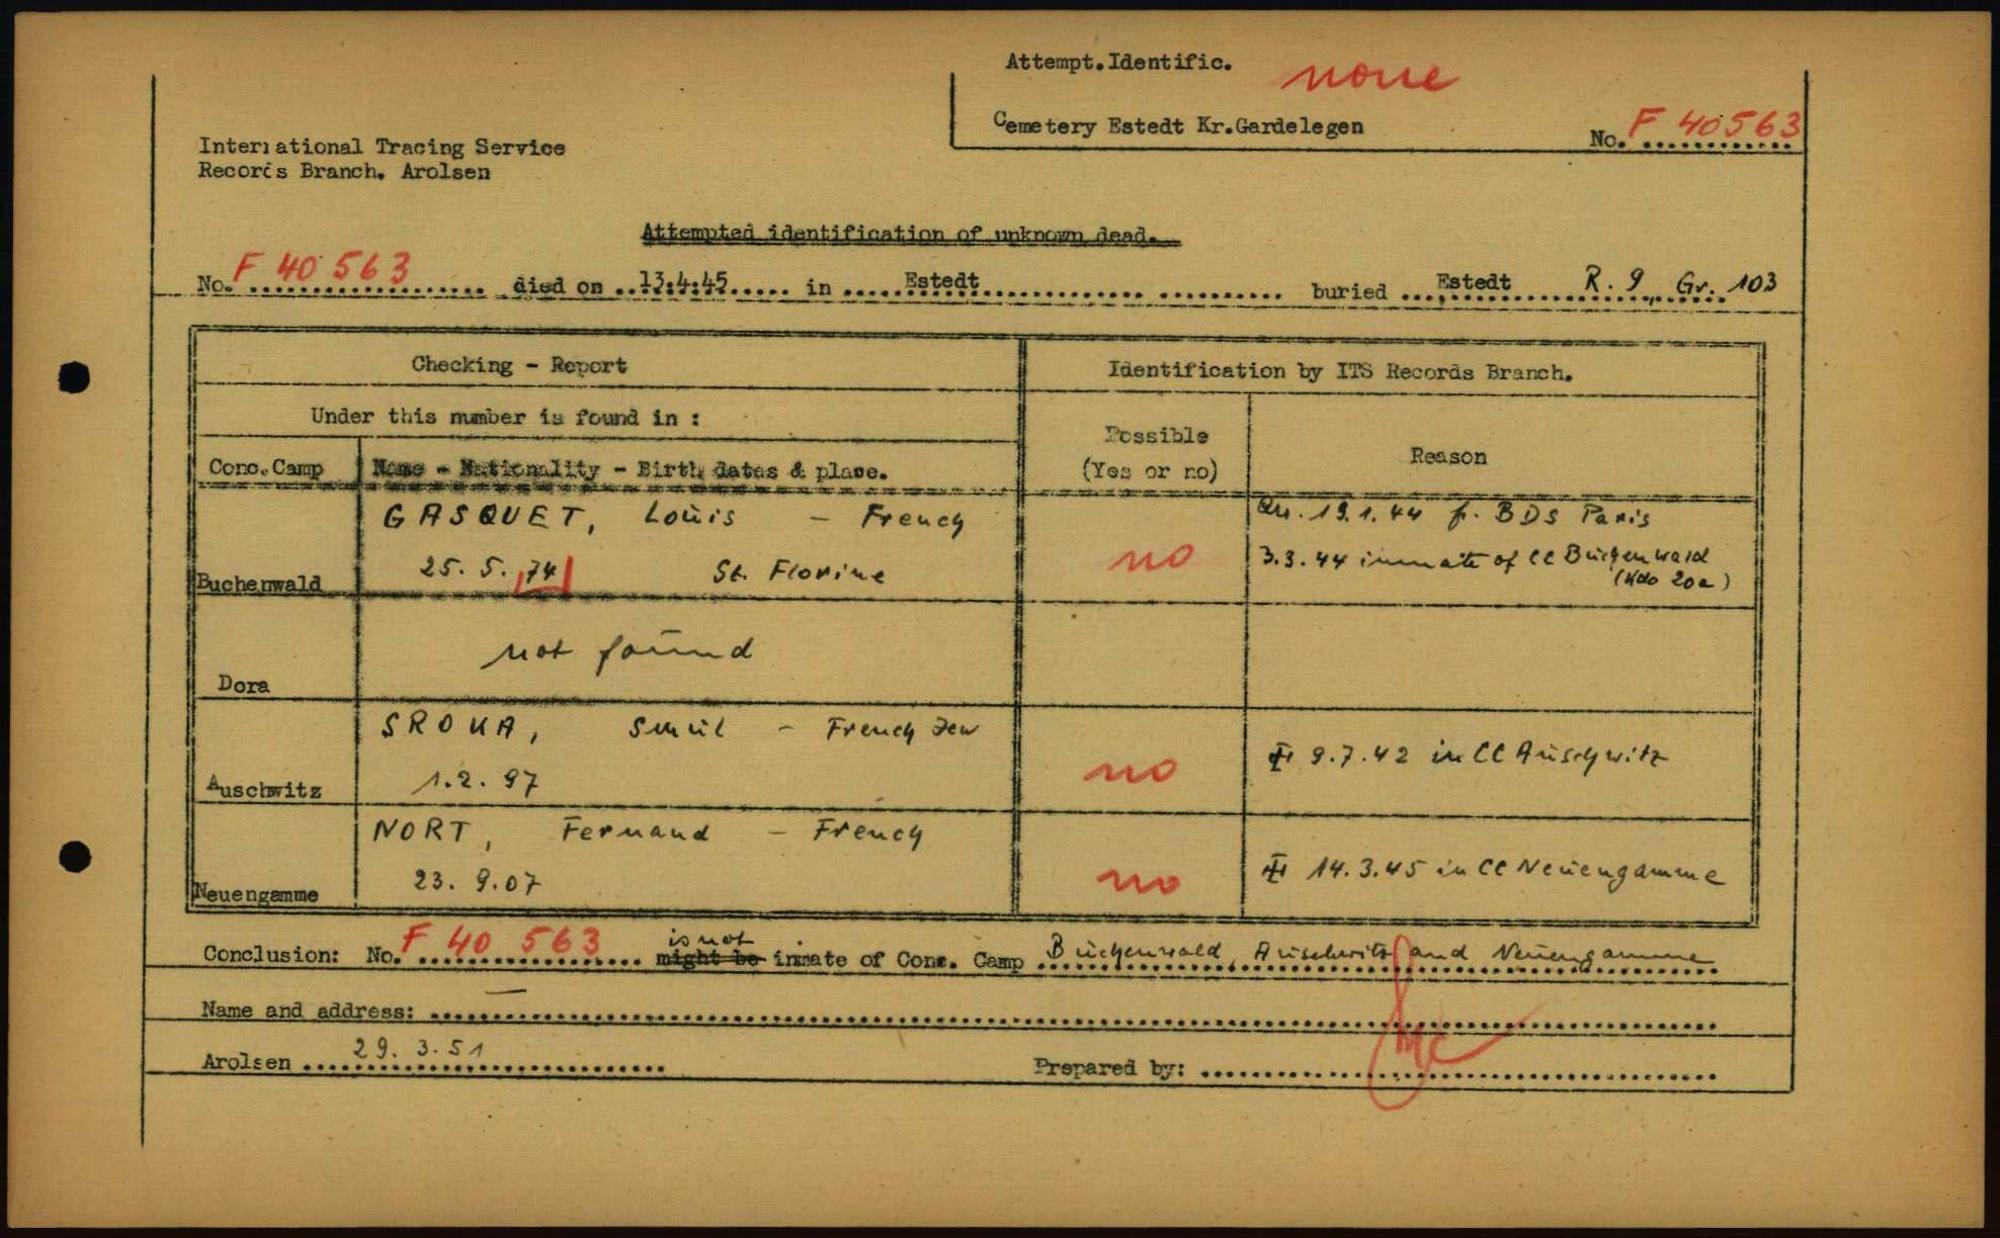 Attempt.Identific. none
Cemetery Estedt Kr.Gardelegen
No. F 40563
International Tracing Service
Records Branch. Arolsen
Attempted identification of unknown dead.
No. F 40 563 died on 13.4.45 in Estedt buried Estedt R. 9 Gr. 103
Checking - Report
Identification by ITS Records Branch.
Under this number is found in :
Possible
(Yes or no)
Reason
Conc.Camp
Name - Nationality - Birth dates & place.
GASQUET, Louis - French
25. 5. 74 St. Florine
Buchenwald
no
19.1.44 fr. BDS Paris
3.3.44 inmate of CC Buchenwald
(Kdo 20a)
Dora
not found
SROKA, Smul - French Jew
1.2. 97
Auschwitz
no
9.7.42 in CC Auschwitz
NORT, Fernand - French
23. 9.07
Neuengamme
no
14.3.45 in CC Neuengamme
is not
Conclusion: No. F 40 563 might be inmate of Conc. Camp Buchenwald, Auschwitz and Neuengamme
Name and address: —
Arolsen 29. 3. 51
Prepared by: